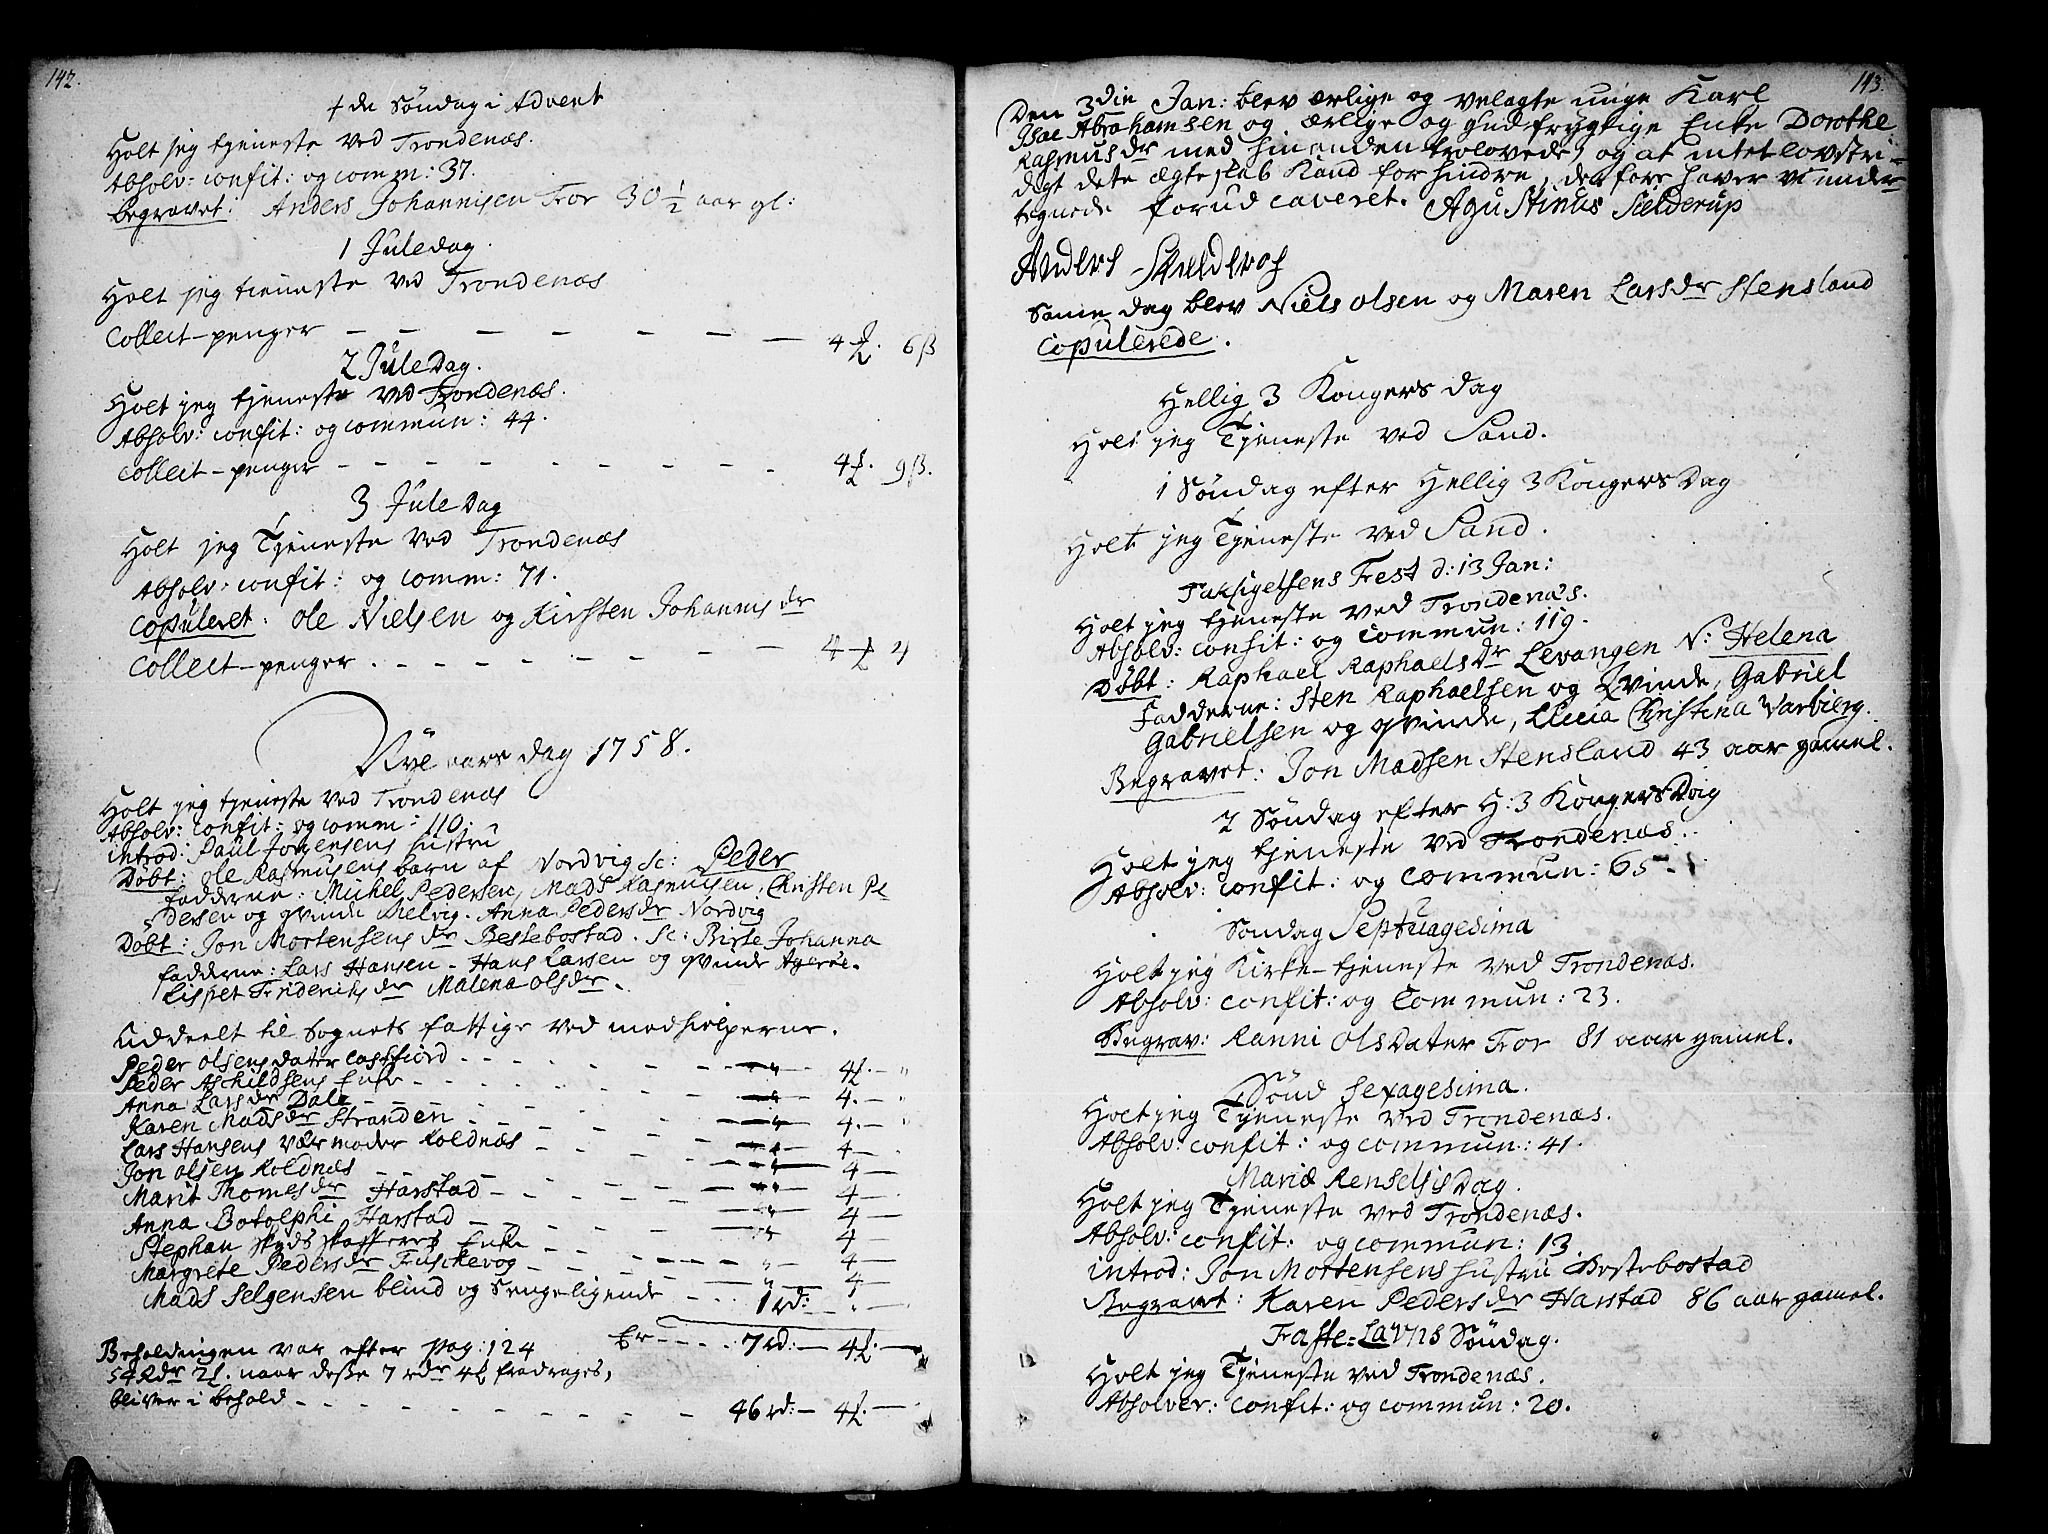 142.
4de Søndag i Advent
Holt jeg tjeneste ved Trondenæs.
Absolv: confit: og comm: 37.
Begravet: Anders Johannisen Tror 30 1/2 aar gl:
1 Juledag.
Holt jeg tieneste ved Trondenæs
Collect-penger — — — — — — — 4 6ß
2 JuleDag.
Holt jeg tjeneste ved Trondenæs.
Absolv: confit: og commun: 44.
Collect-penger — — — — — — — 4 9ß.
3 Jule Dag
Holt jeg Tjeneste ved Trondenæs
Absolv: confit: og comm: 71.
Copuleret. Ole Nielsen og Kirsten Johannis dr
Collect-penger — — — — — — — 4 4
Nye aars dag 1758.
Holt jeg tjeneste ved Trondenæs
Absolv: confit: og comm: 110:
introd: Paul Jørgensens hustru
Døbt: Ole Rasmusens barn af Nordvig sc: Peder
fadderne: Michel Pedersen, Mads Rasmusen, Christen Pe
dersen og qvinde Kielvig. Anna Pedersdr Nordvig
Døbt: Jon Mortensens dr Bestebostad. sc: Birte Johanna
fadderne: Lars Hansen. Hans Larsen og qvinde Agerøe.
Lispet Friderichs dr Malena Olsdr.
Uddeelt til Sognets fattige ved medhielperne.
Peder Olsens dater Cassfiord — — — 4
Peder Aschildsens Enke — — — 4. —
Anna Larsdr Dale — — — 4. —
Karen Madsdr Stranden — — — 4. —
Lars Hansens Værmoder Koldnæs — — — 4 —
Jon Olsen Koldnæs — — — 4 —
Marit Thomesdr Harstad — — — 4 —
Anna Botolphi Harstad — — — 4 —
Stephan Enke — — — 4 —
Margrete Pedersdr Fuskevog — — — 4 —
Mads Selgensen blind og Sengeligende — — 1 rd: —
Er — — — 7 rd: — 4 —
Beholdningen var efter Pag: 124
54 Rdr 2. naar desse 7 rdr 4 fradrages,
bliver i behold — — — 46 rd: — 4 —
143.
Den 3die Jan: blev ærlige og velagte unge Karl
Isac Abrahamsen og ærlige og gudfrygtige Enke Dorothe
Rasmusdr med hinanden trolovede, og at intet lovstri-
digt dete ægteskab kand forhindre, derfore haver vi under
tegnede forud caveret. Agustinus Sielderup
Anders
Same dag blev Niels Olsen og Maren Larsdr Stensland
Copulerede.
Hellig 3 Kongers dag
Holt jeg Tjeneste ved Sand.
1 Søndag efter Hellig 3 Kongers Dag
Holt jeg Tjeneste ved Sand.
Taksigelsens Fest d: 13 Jan:
Holt jeg tjeneste ved Trondenæs.
Absolv: confit: og commun: 119.
Døbt: Raphael Raphaels dr Levangen N: Helena
Fadderne: Sten Raphaelsen og Qvinde, Gabriel
Gabrielsen og qvinde, Lucia Christina Warbierg.
Begravet: Jon Madsen Stensland 43 aar gamel.
2 Søndag efter H: 3 Kongers Dag
Holt jeg tjeneste ved Trondenæs.
Absolv: confit: og commun: 65.
Søndag Septuagesima
Holt jeg Kirke-tjeneste ved Trondenæs.
Absolv: confit: og Commun: 23.
Begrav: Ranni OlsDater Tror 81 aar gamel.
Sønd Sexagesima.
Holt jeg Tjeneste ved Trondenæs.
Absolv: confit: og commun: 41.
Mariæ Renselsis Dag.
Holt jeg Tjeneste ved Trondenæs.
Absolv: confit: og commun: 13.
introd: Jon Mortensens hustru Bestebostad
Begravet: Karen Pedersdr Harstad 86 aar gamel.
Faste-Lavns Søndag.
Holt jeg Tjeneste ved Trondenæs.
Absolver: confit: og commun: 20.